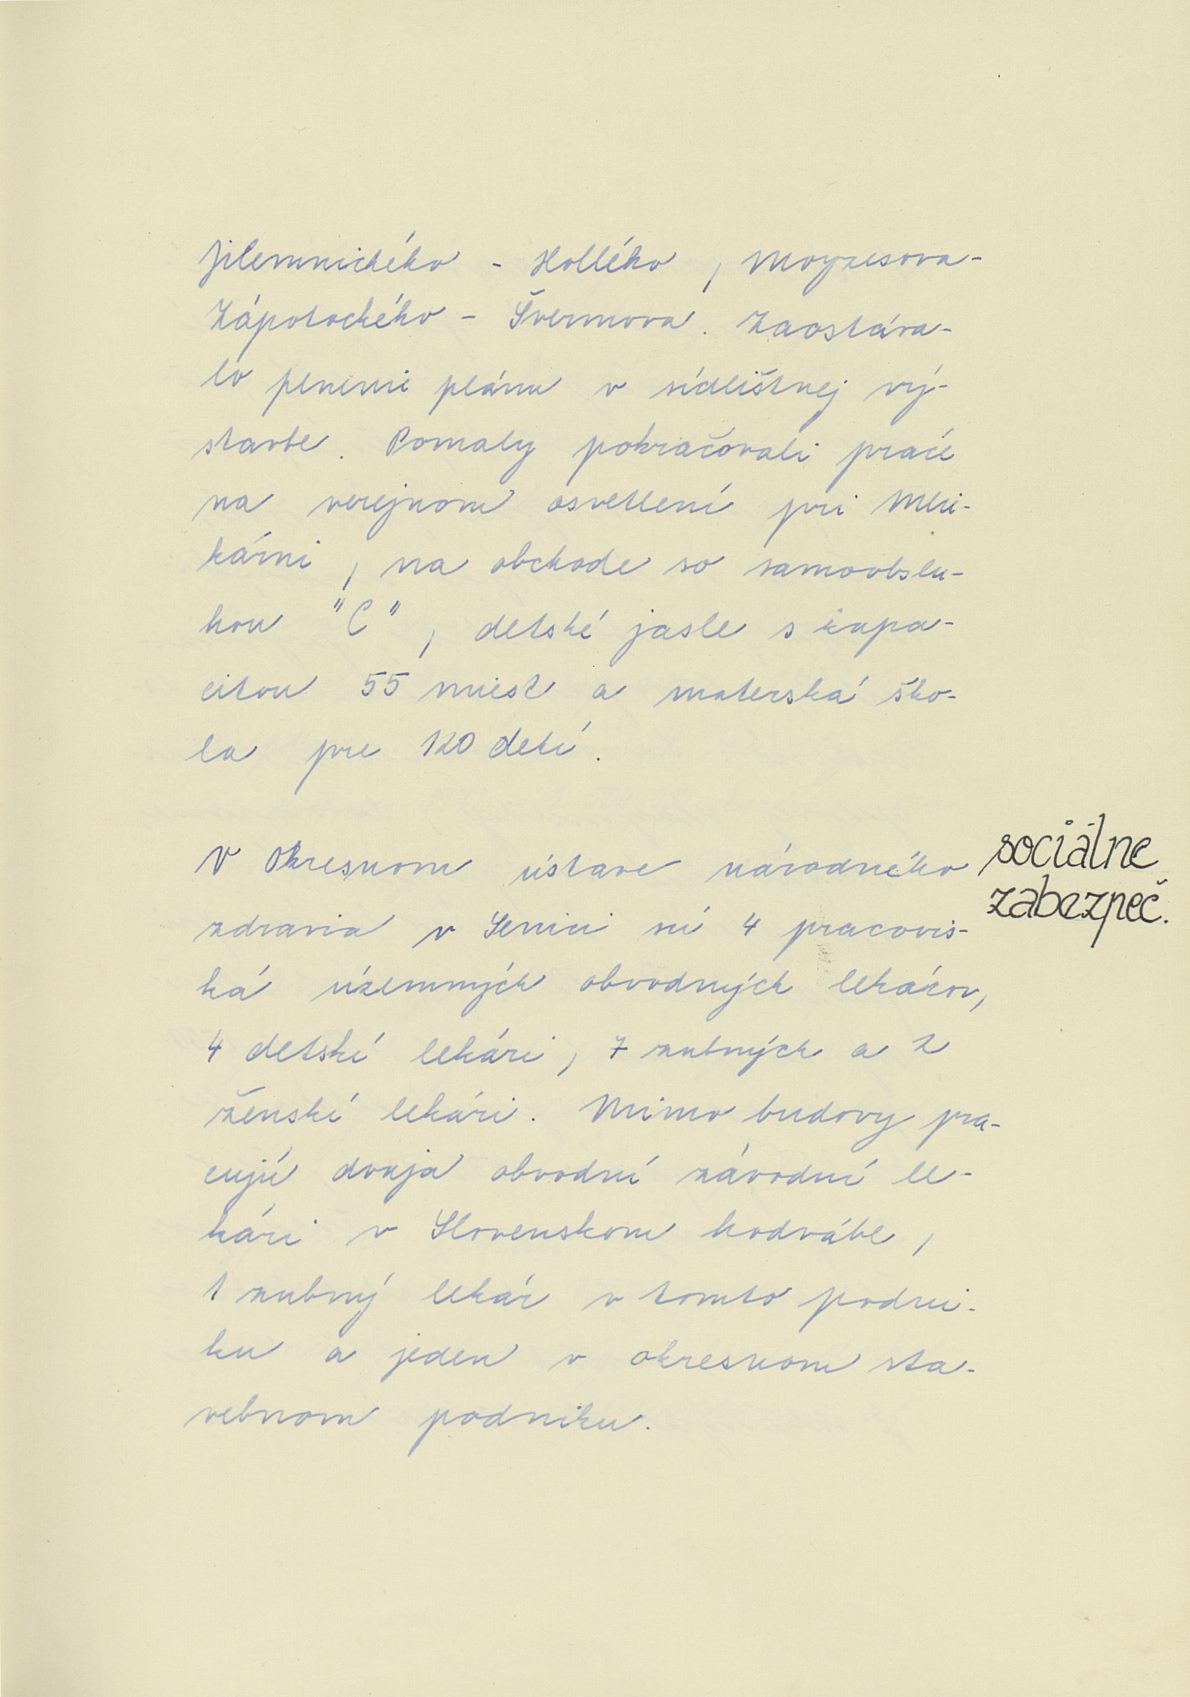 Jilemnického - Hollého, Moyzesova-
Zápotockého - Švermova. Zaostáva-
lo plnenie plánu v sídlištnej vý-
stavbe. Pomaly pokračovali práce
na verejnom osvetlení pri Mlie-
kárni, na obchode so samoobslu-
hou "C", detské jasle s kapa-
citou 55 miest a materská ško-
la pre 120 detí.
V Okresnom ústave národného
sociálne
zabezpeč.
zdravia v Senici sú 4 pracovis-
ká územných obvodných lekárov,
4 detskí lekári, 7 zubných a 2
ženskí lekári. Mimo budovy pra-
cujú dvaja obvodní závodní le-
kári v Slovenskom hodvábe,
1 zubný lekár v tomto podni-
ku a jeden v okresnom sta-
vebnom podniku.